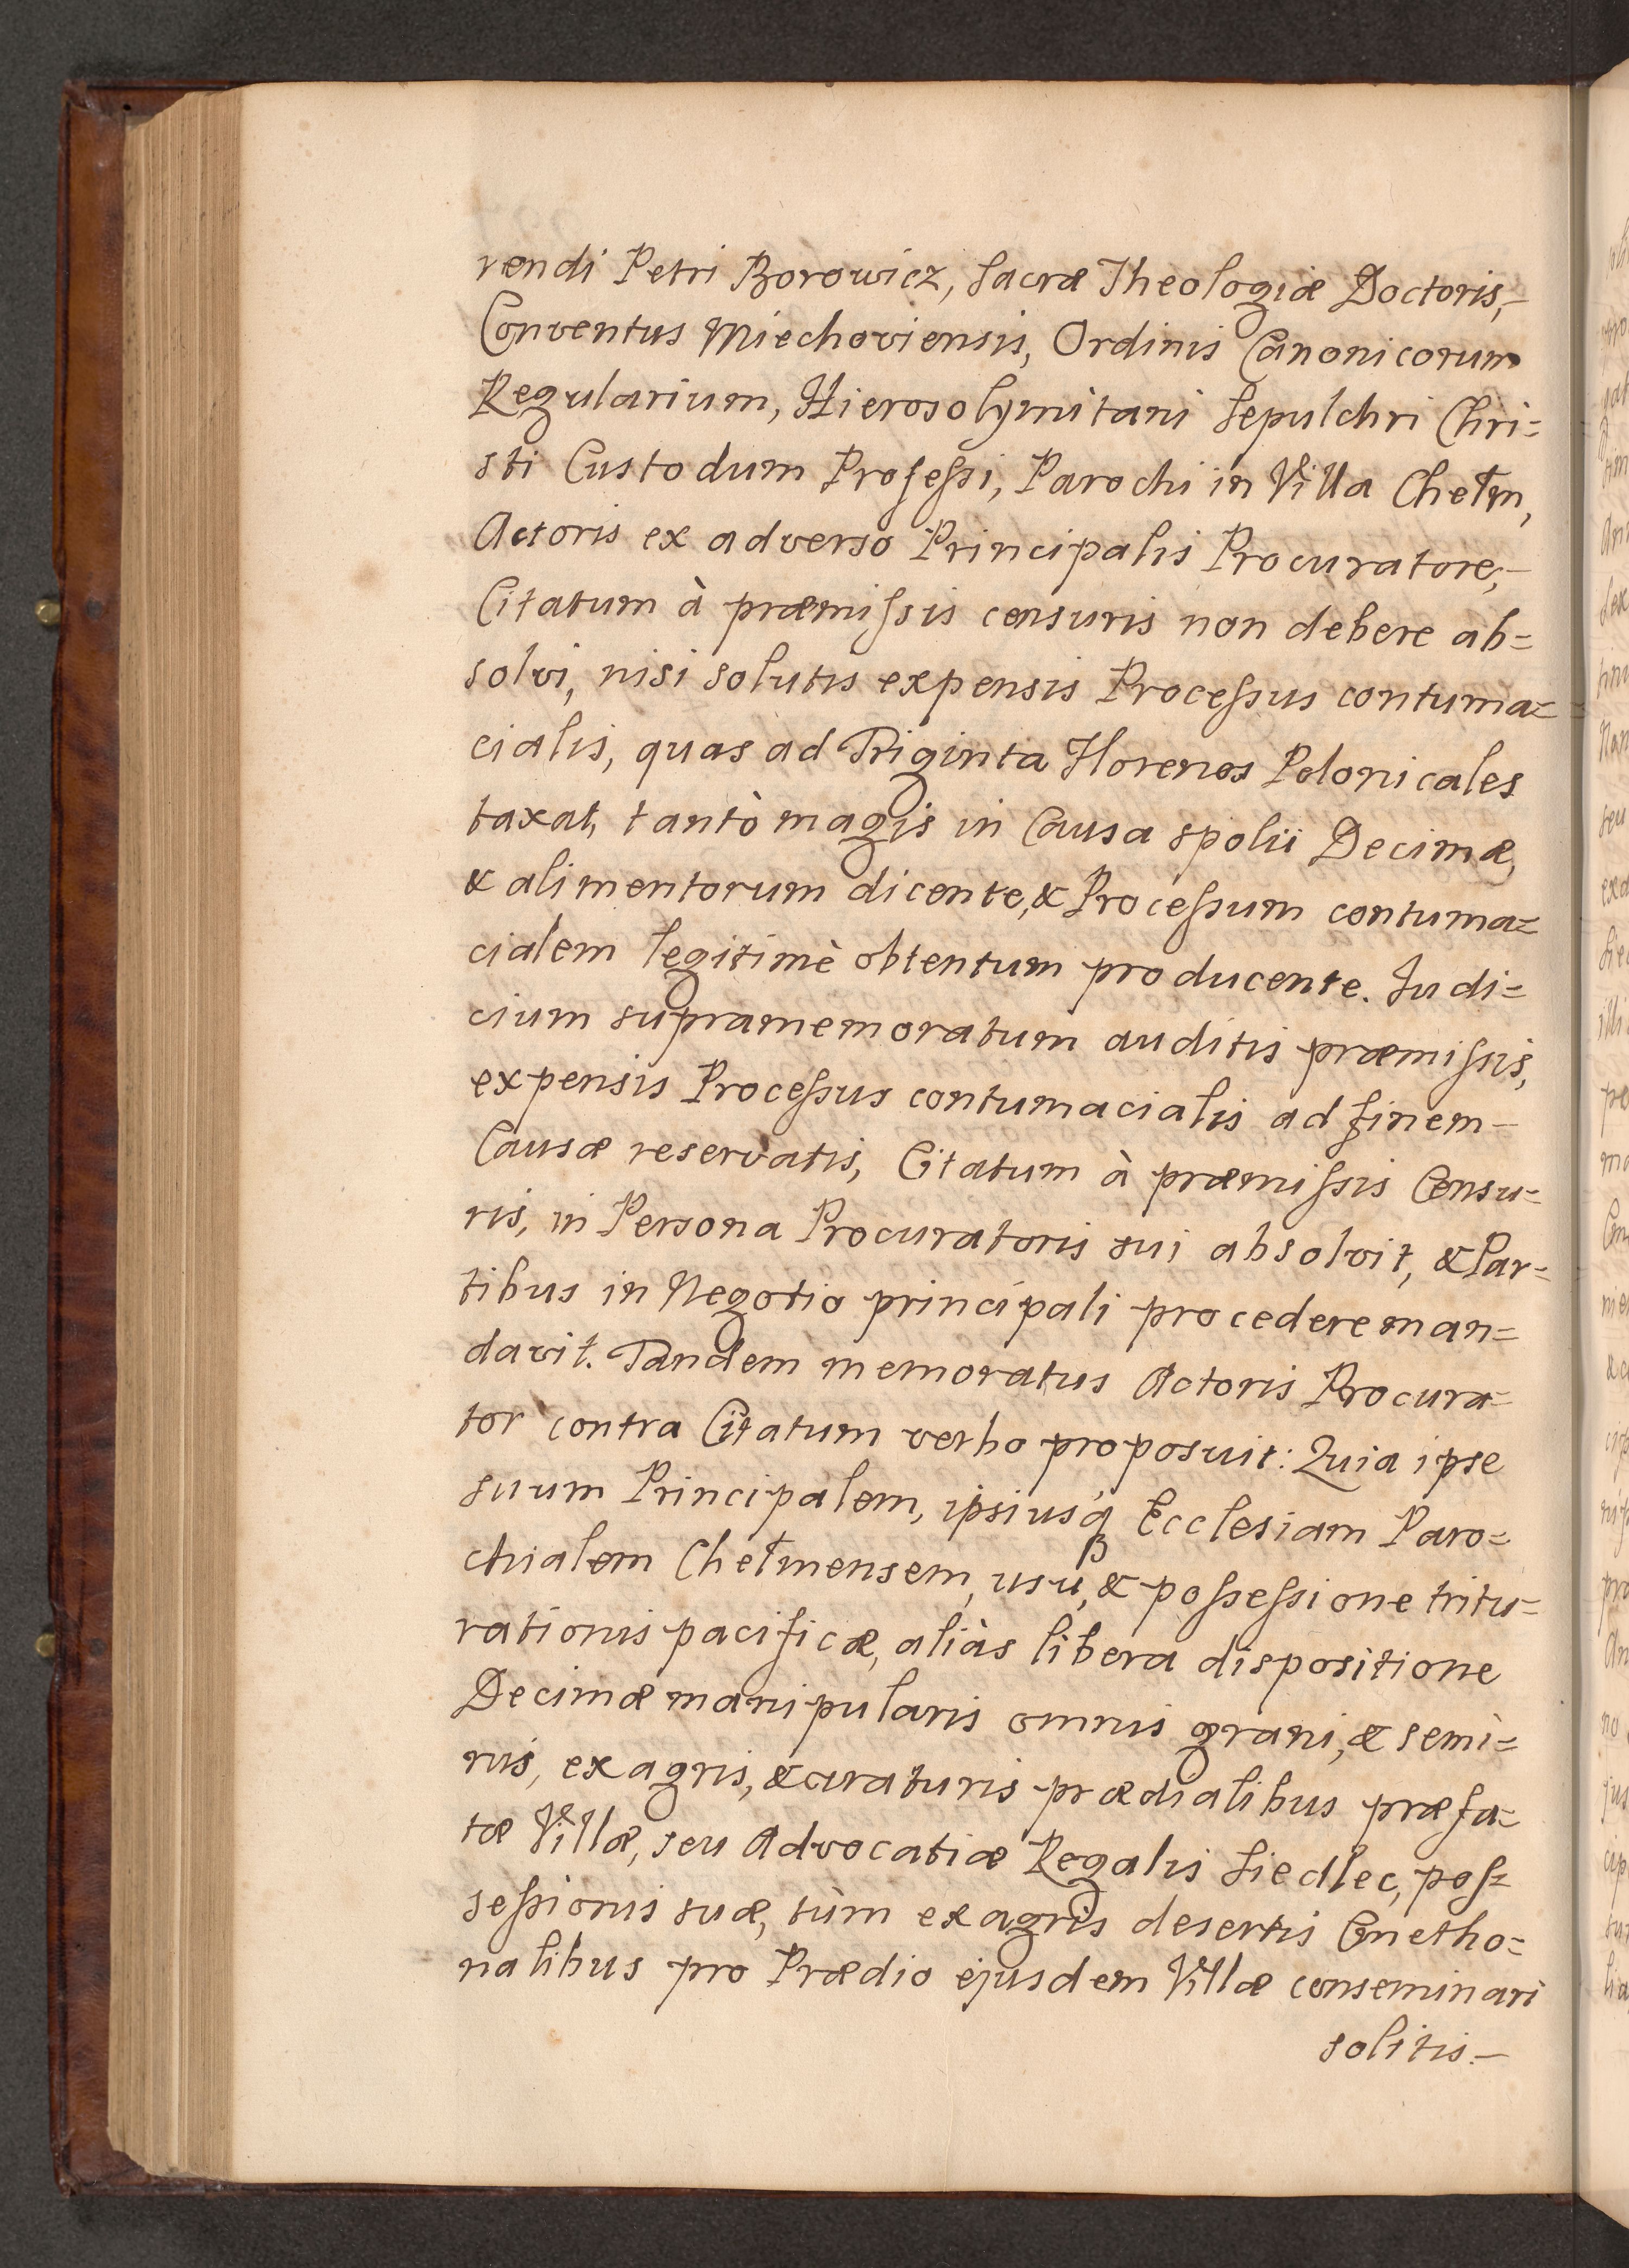 rendi Petri Borowicz, Sacræ Theologiæ Doctoris,–
Conventus Miechoviensis, Ordinis Canonicorum
Regularium, Hierosolymitani Sepulchri Chri=
sti Custodum Professi, Parochi in Villa Chełm,
Actoris ex adverso Principalis Procuratore,–
Citatum à præmissis censuris non debere ab=
solvi, nisi solutis expensis Processus contuma=
cialis, quas ad Triginta Florenos Polonicales
taxat, tantò magis in Causa spolii Decimæ,
& alimentorum dicente, & Processum contuma=
cialem legitimè obtentum producente. Judi=
cium supramemoratum auditis præmissis,
expensis Processus contumacialis ad finem–
Causæ reservatis, Citatum à præmissis Censu=
ris, in Persona Procuratoris sui absolvit, & Par=
tibus in Negotio principali procedere man=
davit. Tandem memoratus Actoris Procura=
tor contra Citatum verbo proposuit: Quia ipse
suum Principalem, ipsiusq́ Ecclesiam Paro=
chialem Chełmensem, usu, & possessione tritu=
rationis pacificæ, aliàs libera dispositione
Decimæ manipularis omnis grani, & semi=
nis, ex agris, & araturis prædialibus præfa=
tæ Villæ, seu Advocatiæ Regalis Siedlec, pos=
sessionis suæ, tùm ex agris desertis Cmetho=
nalibus pro Prædio ejusdem Villæ conseminari
solitis.–